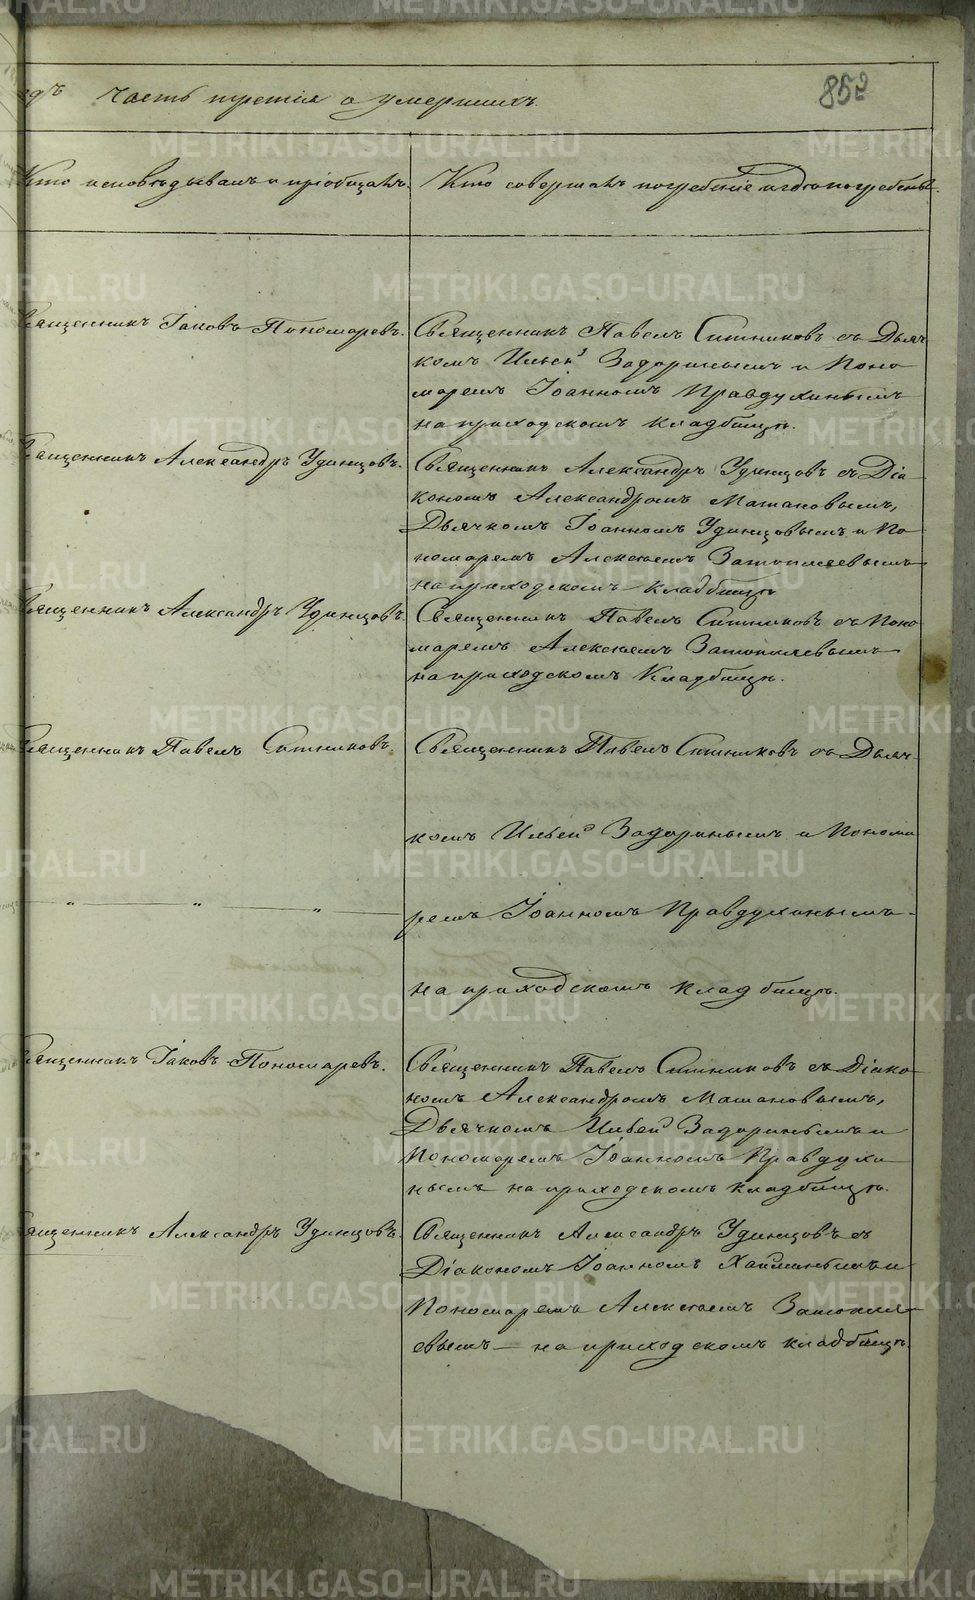 852
часть третiя о умершихъ.
Кто исповѣдывалъ и прiобщалъ.
Кто совершалъ погребенiе и гдѣ погребены.
Священникъ Iаковъ Пономаревъ.
Священникъ Павелъ Ситниковъ съ Дьяч
комъ Ильей Задоринымъ и Поно
маремъ Iоанномъ Правдухинымъ
на приходскомъ кладбищѣ.
Священникъ Александръ Удинцовъ.
Священникъ Александръ Удинцовъ съ Дiа-
кономъ Александромъ Мамановымъ,
Дьячкомъ Iоанномъ Удинцовымъ и По
номаремъ Алексѣемъ Затопляевымъ
на приходскомъ кладбищѣ
Священникъ Александръ Удинцовъ
Священникъ Павелъ Ситниковъ съ Поно
маремъ Алексѣемъ Затопляевымъ
на приходскомъ Кладбищѣ.
Священникъ Павелъ Ситниковъ.
Священникъ Павелъ Ситниковъ съ Дьяч-
комъ Ильей Задоринымъ и Понома
ремъ Iоанномъ Правдухинымъ
на приходскомъ кладбищѣ.
Священникъ Iаковъ Пономаревъ.
Священникъ Павелъ Ситниковъ съ Дiако
номъ Александромъ Мамановымъ,
Дьячкомъ Ильей Задоринымъ и
Пономаремъ Iоанномъ Правдухи
нымъ на приходскомъ кладбищѣ.
Священникъ Александръ Удинцовъ.
Священникъ Александръ Удинцовъ съ
Дiакономъ Iоанномъ Хайминымъ и
Пономаремъ Алексѣемъ Затопля-
евымъ — на приходскомъ кладбищѣ.
METRIKI.GASO-URAL.RU